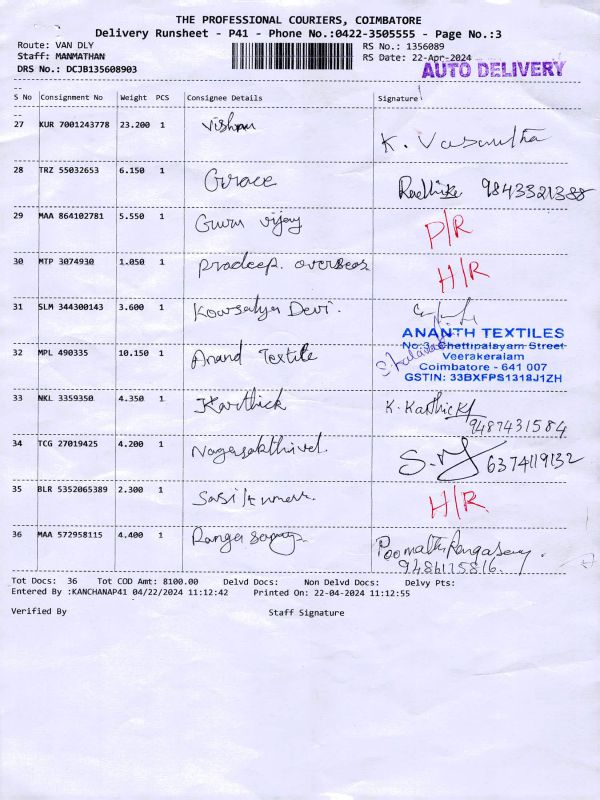 THE PROFESSIONAL COURIERS, COIMBATORE
Delivery Runsheet - P41 - Phone No.:0422-3505555 - Page No.:3
Route: VAN DLY RS No.: 1356089
Staff: MANMATHAN RS Date: 22-Apr-2024
DRS No.: DCJB135608903 AUTO DELIVERY
S No Consignment No Weight PCS Consignee Details Signature
27 KUR 7001243778 23.200 1 Vishnu K. Vasantha
28 TRZ 55032653 6.150 1 Grace Radhike 9843321388
29 MAA 864102781 5.550 1 Guru vijay P/R
30 MTP 3074930 1.050 1 Pradeep. overseas H/R
31 SLM 344300143 3.600 1 Kowsalya Devi.
ANANTH TEXTILES
No:3, Chettipalayam Street
Veerakeralam
Coimbatore - 641 007
GSTIN: 33BXFPS1318J1ZH
32 MPL 490335 10.150 1 Anand Textile
33 NKL 3359350 4.350 1 Karthick K. Karthick
9487431584
34 TCG 27019425 4.200 1 Nagasakthivel. 6374119132
35 BLR 5352065389 2.300 1 Sasikumar. H/R
36 MAA 572958115 4.400 1 Ranga samy Poomathi Rangasamy.
9486175816.
Tot Docs: 36 Tot COD Amt: 8100.00 Delvd Docs: Non Delvd Docs: Delvy Pts:
Entered By :KANCHANAP41 04/22/2024 11:12:42 Printed On: 22-04-2024 11:12:55
Verified By Staff Signature